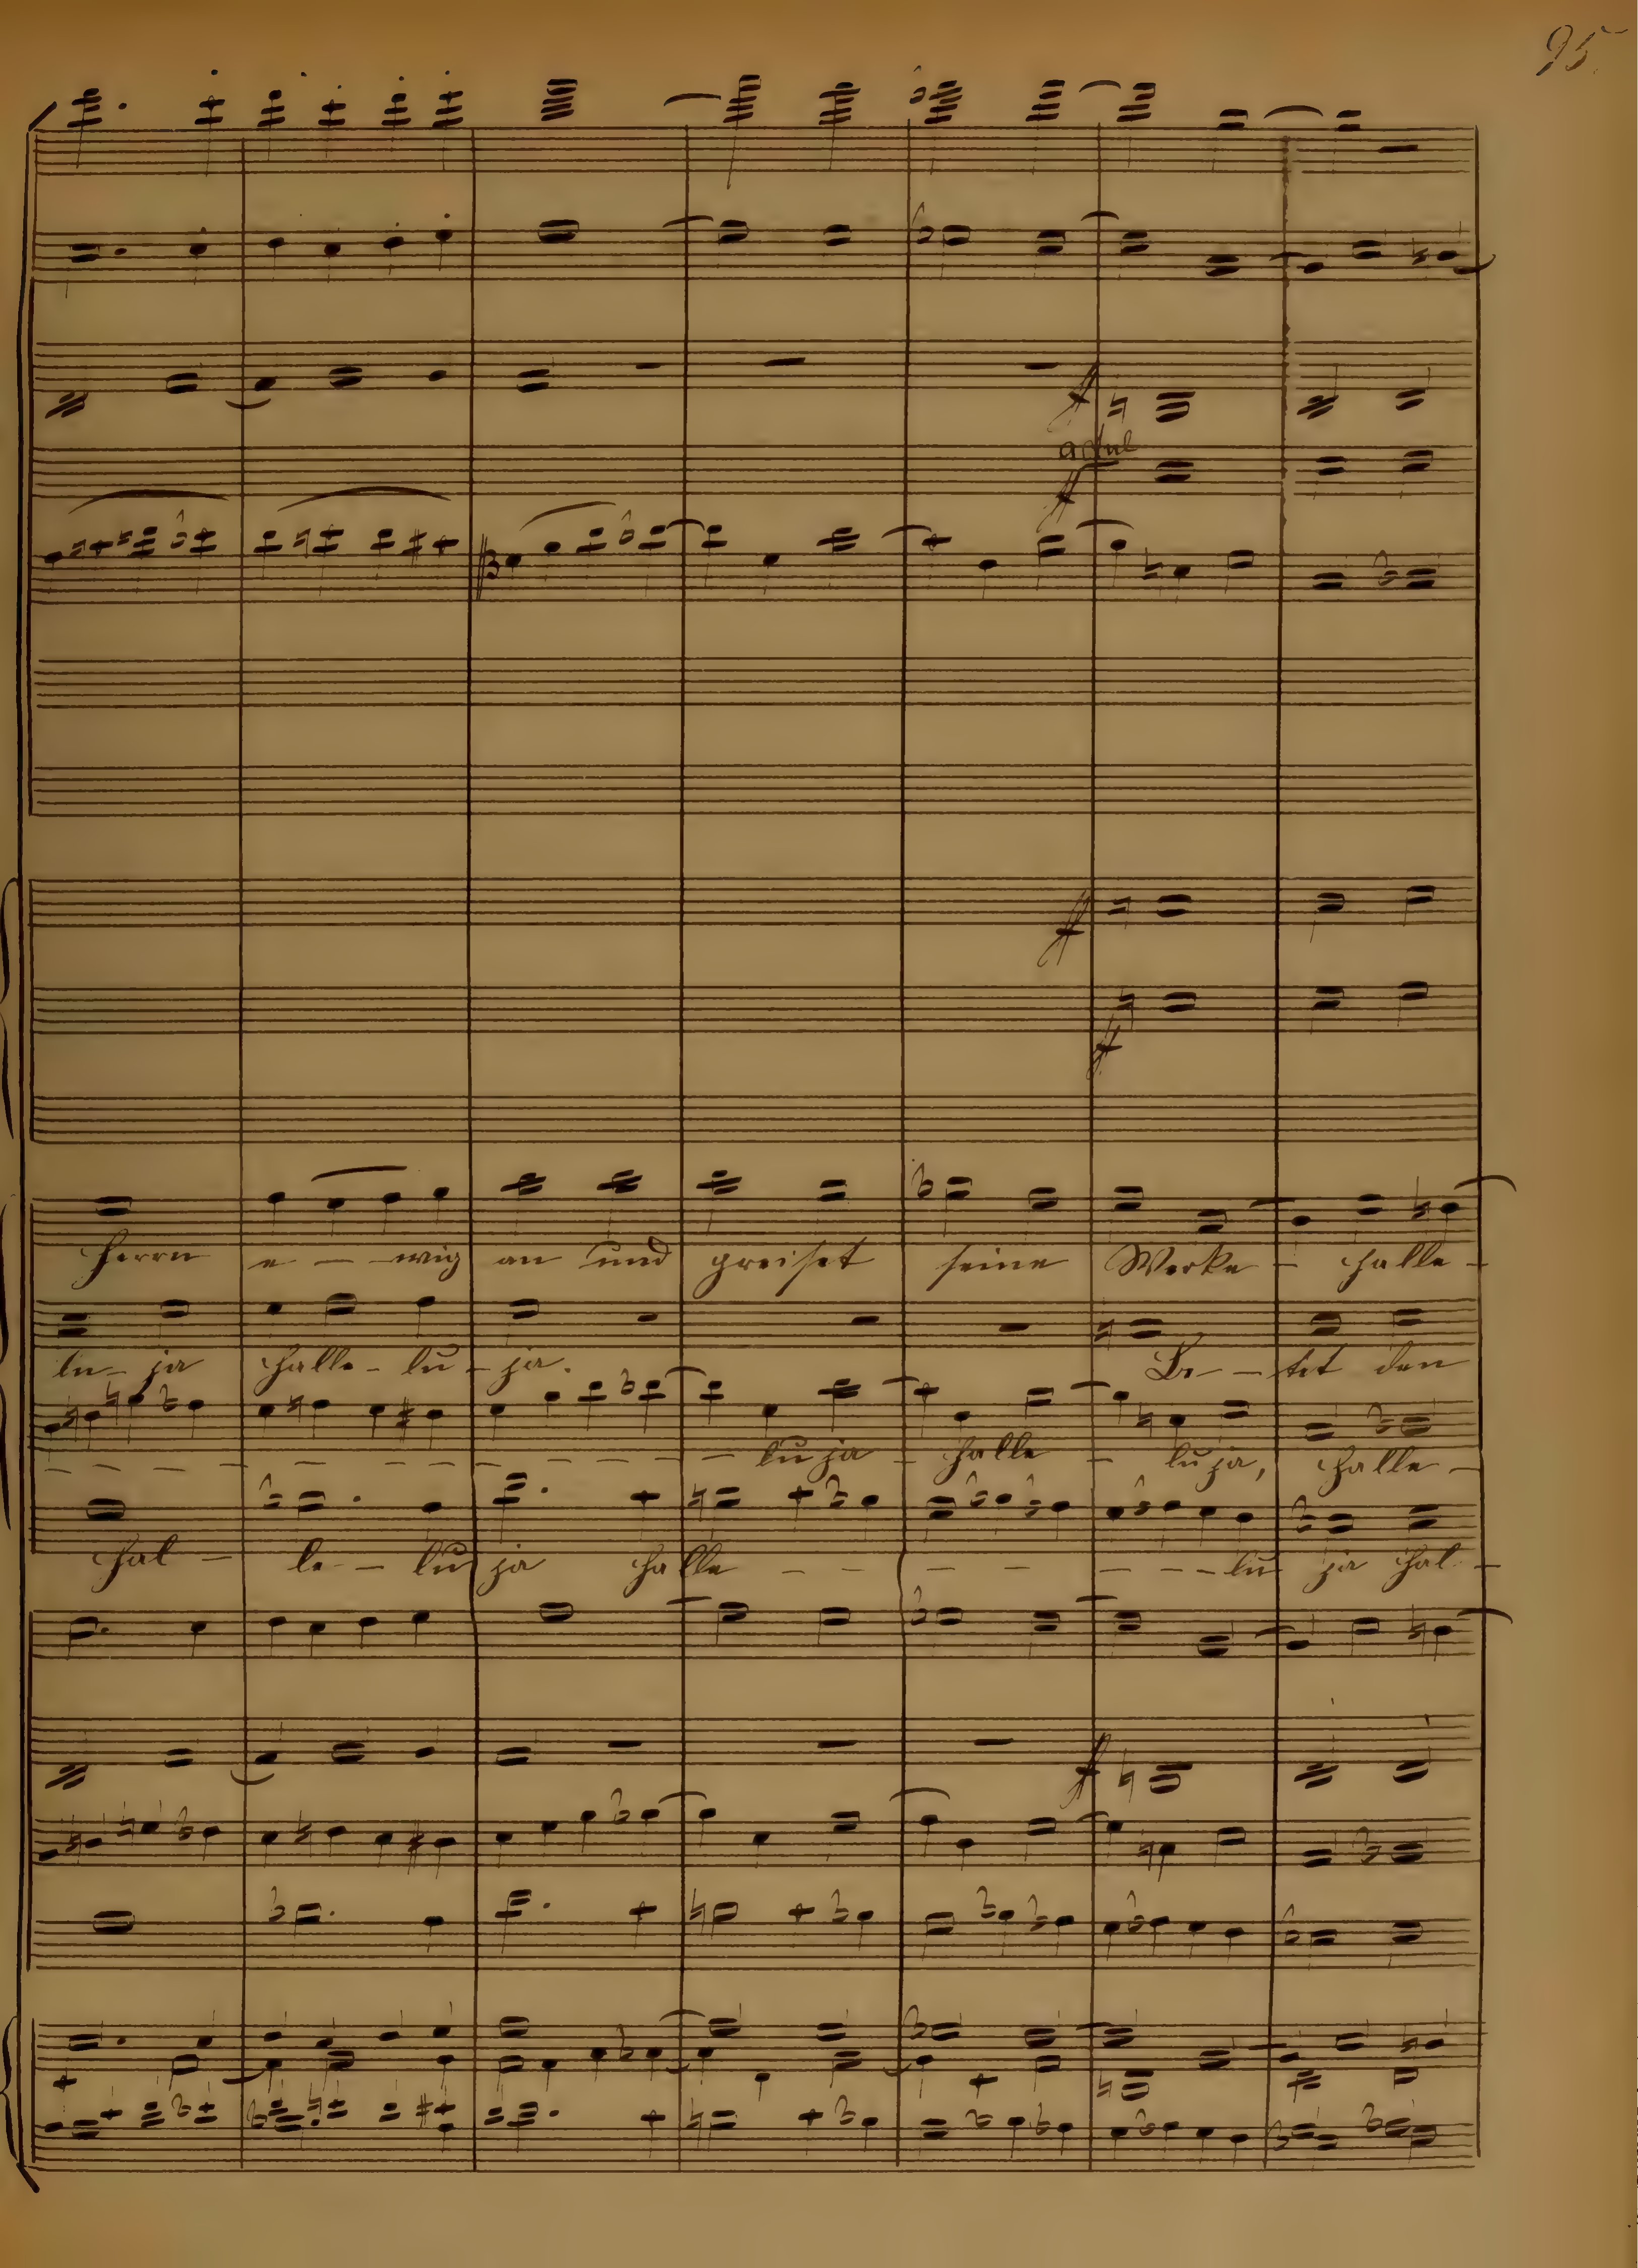 95.
a 2
Herrn e - - wig an und preiset seine Werke - halle -
lu - ja halle - lu - ja. Be - - tet den
- lu ja - halle - lu ja, halle -
hal - le - - lu ja halle - - - - - - - - lu ja hal -